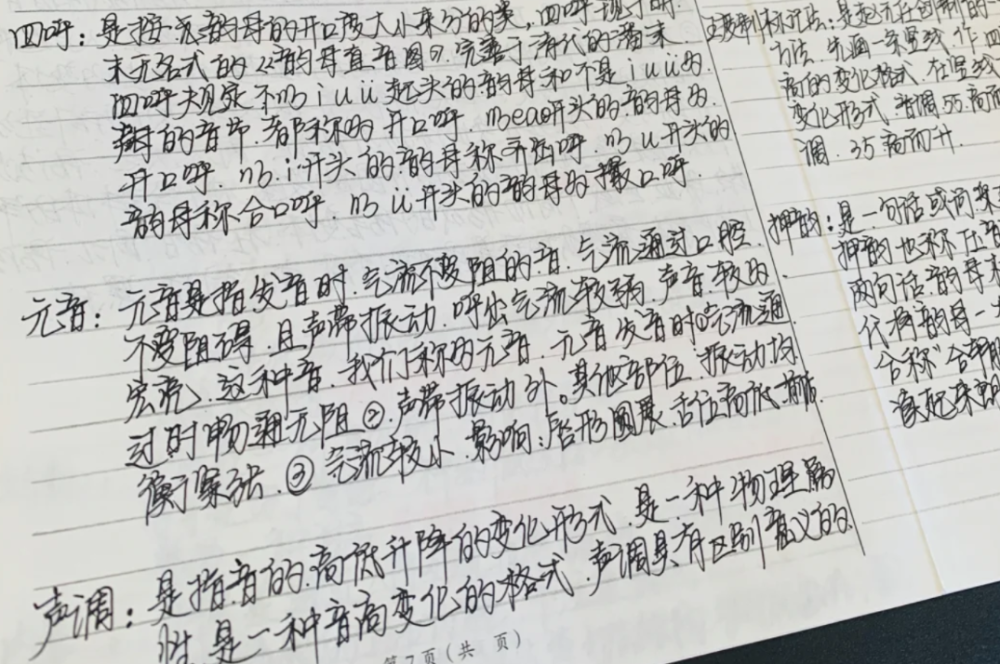 四呼：是按元音韵母的开口度大小来分的类，四呼现于明
末无名氏的《韵母直音图》，完善于清代的潘耒
四呼规定不以 i u ü 起头的韵母和不是 i u ü 为
的音节，都称为开口呼。以 e a o 开头的韵母为
开口呼，以 i 开头的韵母称齐齿呼，以 u 开头的
韵母称合口呼，以 ü 开头的韵母为撮口呼。
元音：元音是指发音时，气流不受阻的音，气流通过口腔
不受阻碍，且声带振动，呼出气流较弱，声音较为
宏亮，这种音，我们称为元音，元音发音时①气流通
过时畅通无阻②声带振动外。其他部位振动均
衡紧张，③气流较小，影响：唇形圆展，舌位高低，前后
声调：是指音的高低升降的变化形式，是一种物理属
性，是一种音高变化的格式，声调具有区别意义的
第7页（共 页）
五度制标记法：是赵元任创制的一
方法，先画一条竖线，作四
高的变化格式，在竖线
变化形式，普调，55，高而
调，35高而升
押韵：是一句话或问架
押韵也称压韵
两句话韵母
代有韵母一
合称“合辙
读起来